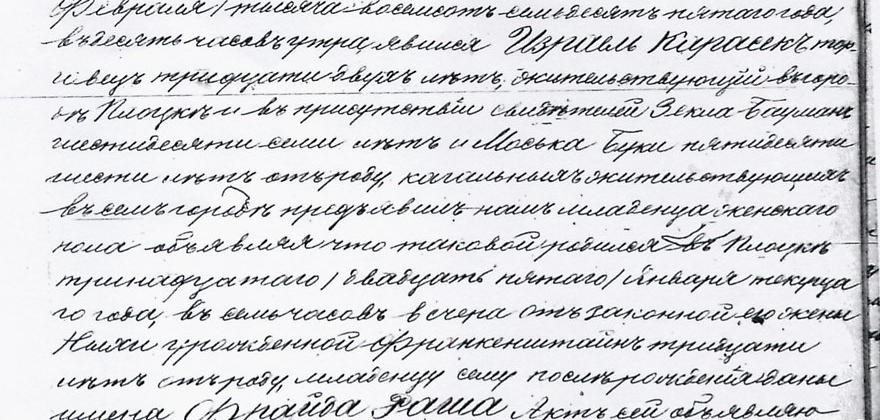 Февраля/ тысяча восемьсотъ семьдесятъ пятаго года,
въ десять часовъ утра, явился Израиль Карасекъ тор-
говецъ тридцати двухъ лѣтъ, жительствующій въ горо
дѣ Плоцкѣ и въ присутствіи свидѣтелей Зекла Бауманъ
шестидесяти семи лѣтъ и Моська Буки пятидесяти
шести лѣтъ отъ роду, кагальныхъ жительствующихъ
въ семъ городѣ предъявилъ намъ младенца женскаго
пола объявляя что таковой родился въ Плоцкѣ
тринадцатаго / двадцать пятаго / Января текуща
го года, въ семь часовъ вечера отъ законной его жены
урожденной Франкенштайнъ тридцати
лѣтъ отъ роду, младенцу сему послѣ рожденія даны
имена Фрайда Раша Актъ сей объявляю